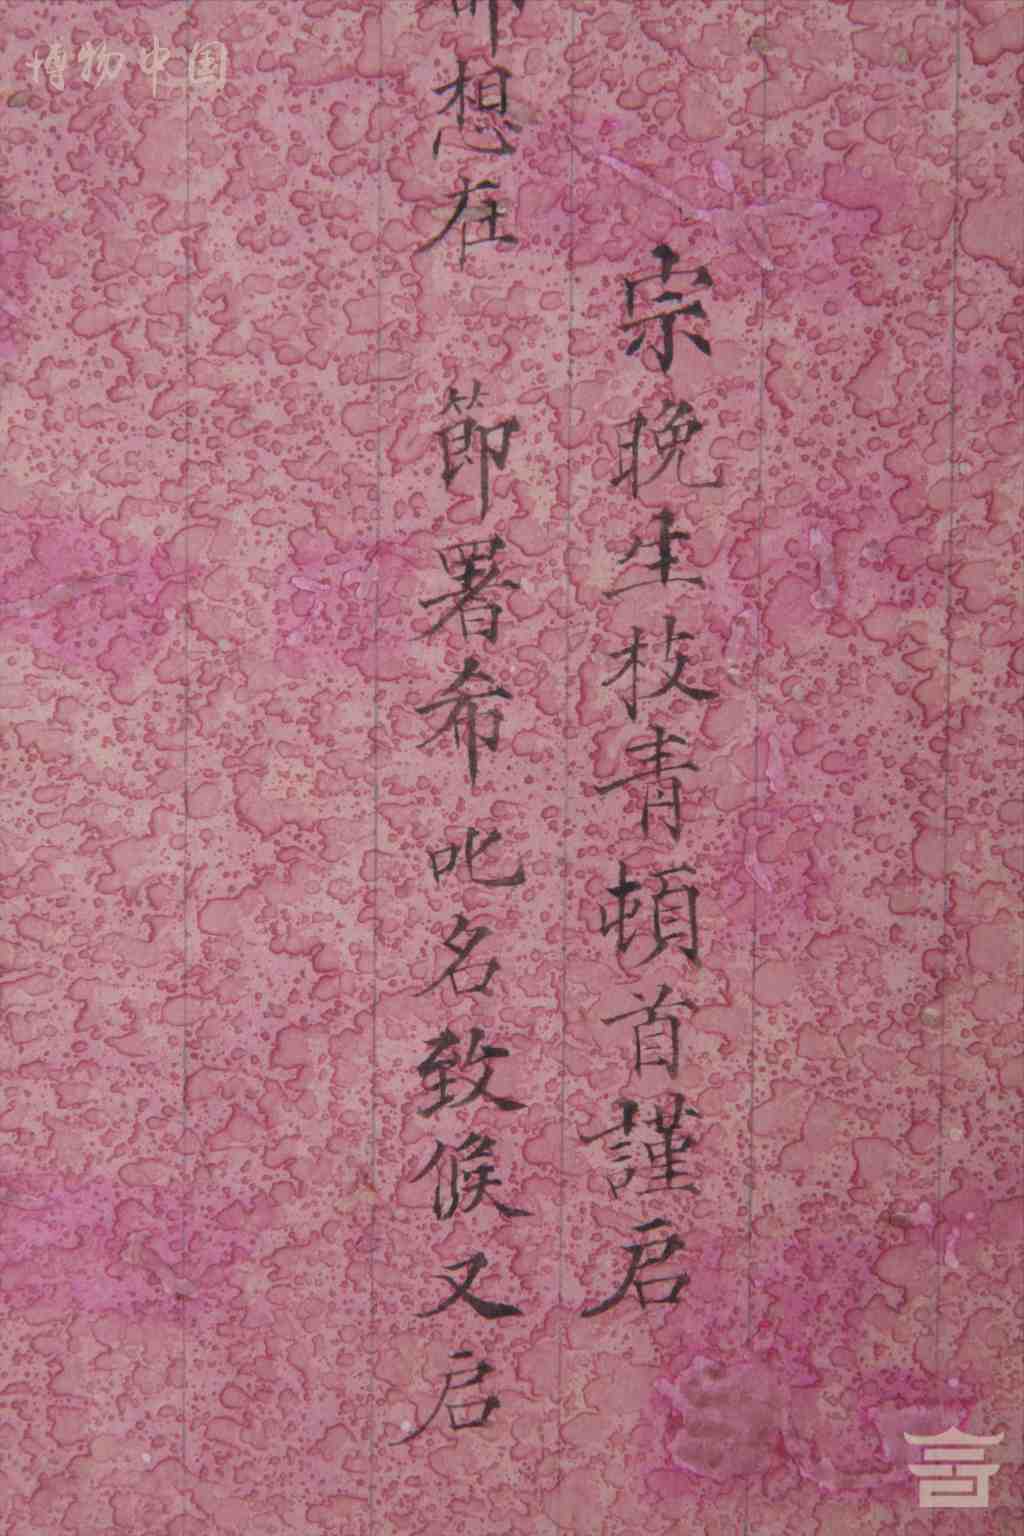 宗晚生枝青頓首謹启
想在 節署希叱名致候又启
博物中国